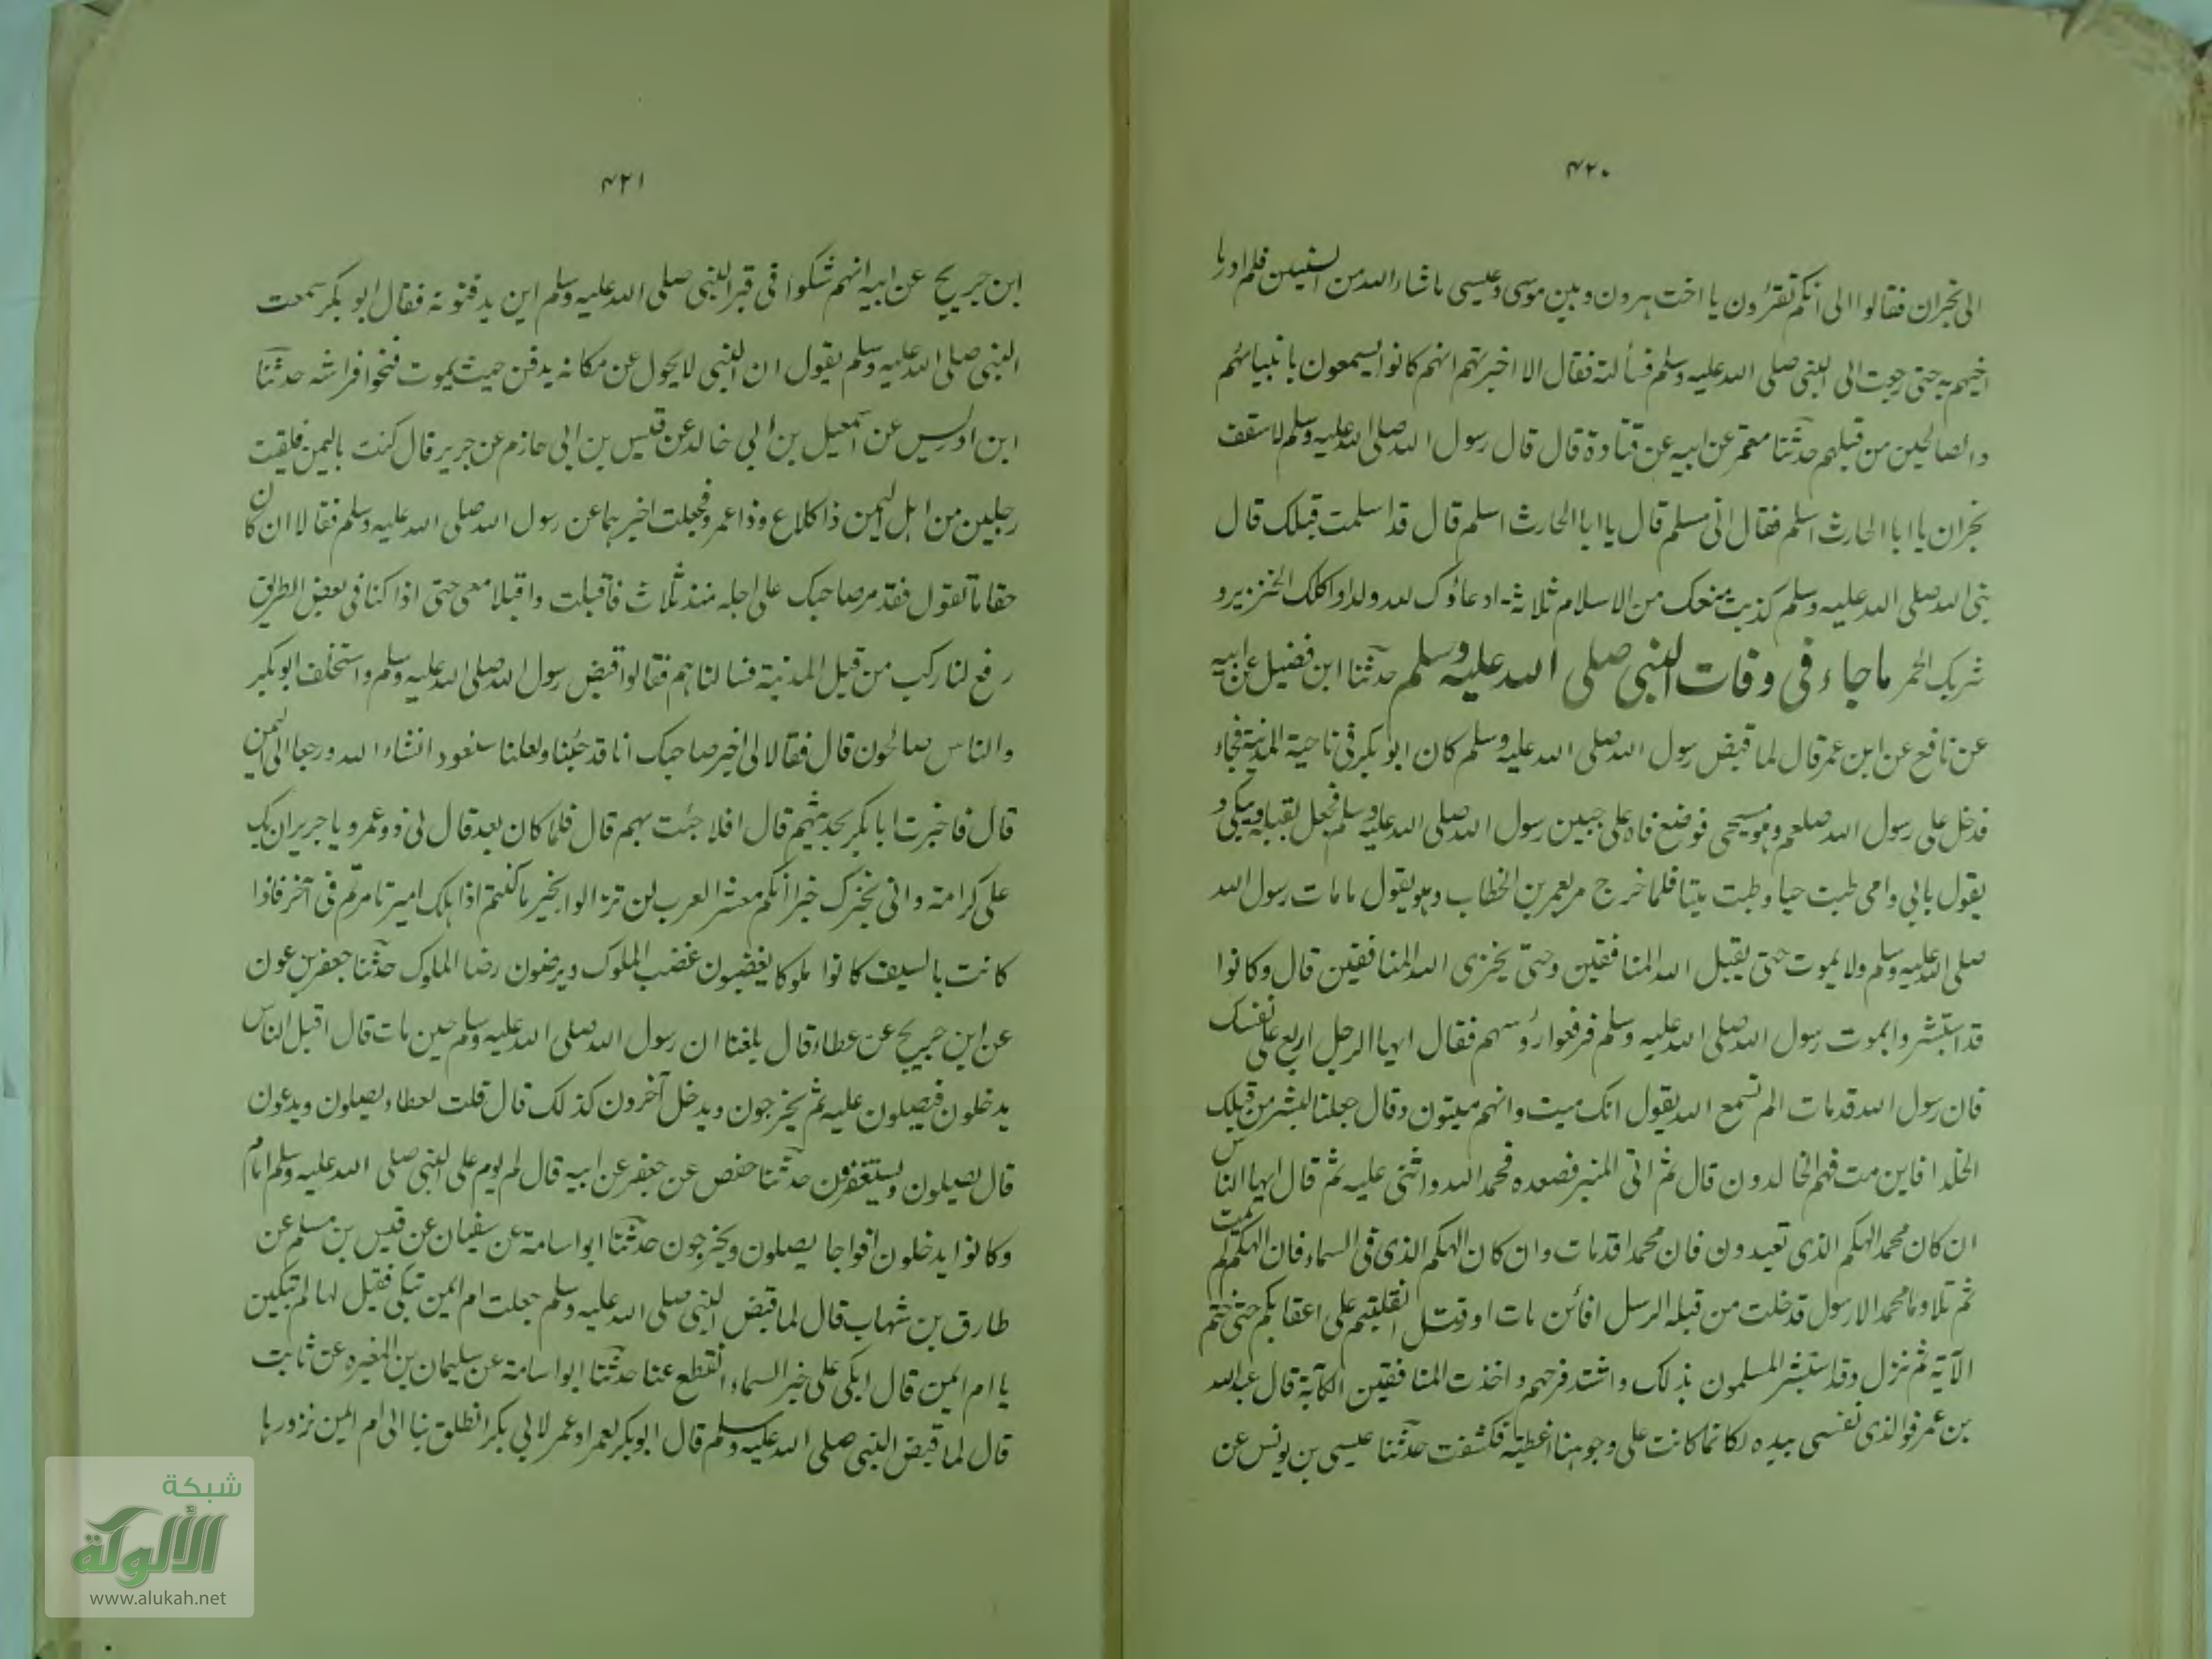 ٤٢٠
الى نجران فقالوا الى انكم تقرؤن يا اخت هرون وبين موسى وعيسى ما شاء الله من السنين فلم ادر ما
اخبرهم به حتى رجعت الى النبى صلى الله عليه وسلم فسألته فقال الا اخبرتهم انهم كانوا يسمعون بانبيائهم
والصالحين من قبلهم حدثنا معتمر عن ابيه عن قتادة قال قال رسول الله صلى الله عليه وسلم لاسقف
نجران يا ابا الحارث اسلم فقال انى مسلم قال يا ابا الحارث اسلم قال قد اسلمت قبلك قال
نبى الله صلى الله عليه وسلم كذبت منعك من الاسلام ثلاثة ادعاؤك لله ولدا واكلك الخنزير و
شربك الخمر ما جاء فى وفات النبى صلى الله عليه وسلم حدثنا ابن فضيل عن ابيه
عن نافع عن ابن عمر قال لما قبض رسول الله صلى الله عليه وسلم كان ابو بكر فى ناحية المدينة فجاء
فدخل على رسول الله صلعم وهو مسجى فوضع فاه على جبين رسول الله صلى الله عليه وسلم فجعل يقبله ويبكى و
يقول بابي وامى طبت حيا وطبت ميتا فلما خرج مر بعمر بن الخطاب وهو يقول ما مات رسول الله
صلى الله عليه وسلم ولا يموت حتى يقبل الله المنافقين وحتى يخزى الله المنافقين قال وكانوا
قد استبشروا بموت رسول الله صلى الله عليه وسلم فرفعوا رؤسهم فقال ايها الرجل اربع على نفسك
فان رسول الله قد مات الم تسمع الله يقول انك ميت وانهم ميتون وقال جعلنا لبشر من قبلك
الخلد افاين مت فهم الخالدون قال ثم اتى المنبر فصعده فحمد الله واثنى عليه ثم قال ايها الناس
ان كان محمد الهكم الذى تعبدون فان محمدا قد مات وان كان الهكم الذى فى السماء فان الهكم لم يمت
ثم تلا وما محمد الا رسول قد خلت من قبله الرسل افائن مات او قتل انقلبتم على اعقابكم حتى ختم
الآية ثم نزل وقد استبشر المسلمون بذلك واشتد فرحهم واخذت المنافقين الكآبة قال عبد الله
بن عمر فوالذى نفسى بيده لكانما كانت على وجوهنا اغطية فكشفت حدثنا عيسى بن يونس عن
٤٢١
ابن جريج عن ابيه انهم شكوا فى قبر النبى صلى الله عليه وسلم اين يدفنونه فقال ابو بكر سمعت
النبى صلى الله عليه وسلم يقول ان النبى لا يحول عن مكانه يدفن حيث يموت فنحوا فراشه حدثنا
ابن ادريس عن اسمعيل بن ابي خالد عن قيس بن ابى حازم عن جرير قال كنت باليمن فلقيت
رجلين من اهل اليمن ذا كلاع وذا عمرو فجعلت اخبرهما عن رسول الله صلى الله عليه وسلم فقالا ان كان
حقا ما تقول فقد مر صاحبك على اجله منذ ثلاث فاقبلت واقبلا معى حتى اذا كنا فى بعض الطريق
رفع لنا ركب من قبل المدينة فسالناهم فقالوا قبض رسول الله صلى الله عليه وسلم واستخلف ابو بكر
والناس صالحون قال فقالا لى اخبر صاحبك انا قد جئنا ولعلنا سنعود انشاء الله ورجعا الى اليمن
قال فاخبرت ابا بكر بحديثهم قال افلا جئت بهم قال فلما كان بعد قال لى ذو عمرو يا جرير ان بك
على كرامة وانى مخبرك خبرا انكم معشر العرب لن تزالوا بخير ما كنتم اذا هلك امير تامرتم فى آخر فاذا
كانت بالسيف كانوا ملوكا يغضبون غضب الملوك ويرضون رضا الملوك حدثنا جعفر بن عون
عن ابن جريج عن عطاء قال بلغنا ان رسول الله صلى الله عليه وسلم حين مات قال اقبل الناس
يدخلون فيصلون عليه ثم يخرجون ويدخل آخرون كذلك قال قلت لعطاء يصلون ويدعون
قال يصلون ويستغفرون حدثنا حفص عن جعفر عن ابيه قال لم يوم على النبى صلى الله عليه وسلم امام
وكانوا يدخلون افواجا يصلون ويخرجون حدثنا ابو اسامة عن سفيان عن قيس بن مسلم عن
طارق بن شهاب قال لما قبض النبى صلى الله عليه وسلم جعلت ام ايمن تبكى فقيل لها لم تبكين
يا ام ايمن قال ابكى على خبر السماء انقطع عنا حدثنا ابو اسامة عن سليمان بن المغيره عن ثابت
قال لما قبض النبى صلى الله عليه وسلم قال ابو بكر لعمر او عمر لابي بكر انطلق بنا الى ام ايمن نزورها
شبكة
الألوكة
www.alukah.net